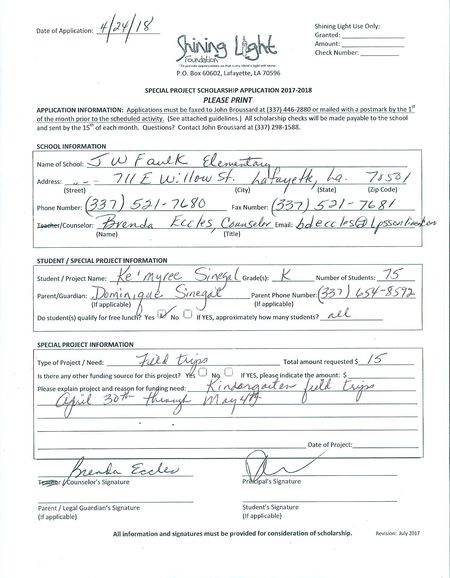 Date of Application: 4/24/18
Shining Light
Foundation
P.O. Box 60602, Lafayette, LA 70596
Shining Light Use Only:
Granted:
Amount:
Check Number:
SPECIAL PROJECT SCHOLARSHIP APPLICATION 2017-2018
PLEASE PRINT
APPLICATION INFORMATION: Applications must be faxed to John Broussard at (337) 446-2880 or mailed with a postmark by the 1st
of the month prior to the scheduled activity. (See attached guidelines.) All scholarship checks will be made payable to the school
and sent by the 15th of each month. Questions? Contact John Broussard at (337) 298-1588.
SCHOOL INFORMATION
Name of School: J W Faulk Elementary
Address: 711 E Willow St. Lafayette, La. 70501
(Street) (City) (State) (Zip Code)
Phone Number: (337) 521-7680 Fax Number: (337) 521-7681
Teacher/Counselor: Brenda Eccles, Counselor Email: bdeccles@
(Name) (Title)
STUDENT / SPECIAL PROJECT INFORMATION
Student / Project Name: Ke'myree Sinegal Grade(s): K Number of Students: 75
Parent/Guardian: Dominique Sinegal Parent Phone Number: (337) 654-8592
(If applicable) (If applicable)
Do student(s) qualify for free lunch? Yes No If YES, approximately how many students? all
SPECIAL PROJECT INFORMATION
Type of Project / Need: Field trips Total amount requested $ 15
Is there any other funding source for this project? Yes No If YES, please indicate the amount: $
Please explain project and reason for funding need: Kindergarten field trips
April 30th through May 4th
Date of Project:
Brenda Eccles
Teacher / Counselor's Signature Principal's Signature
Parent / Legal Guardian's Signature Student's Signature
(If applicable) (If applicable)
All information and signatures must be provided for consideration of scholarship. Revision: July 2017